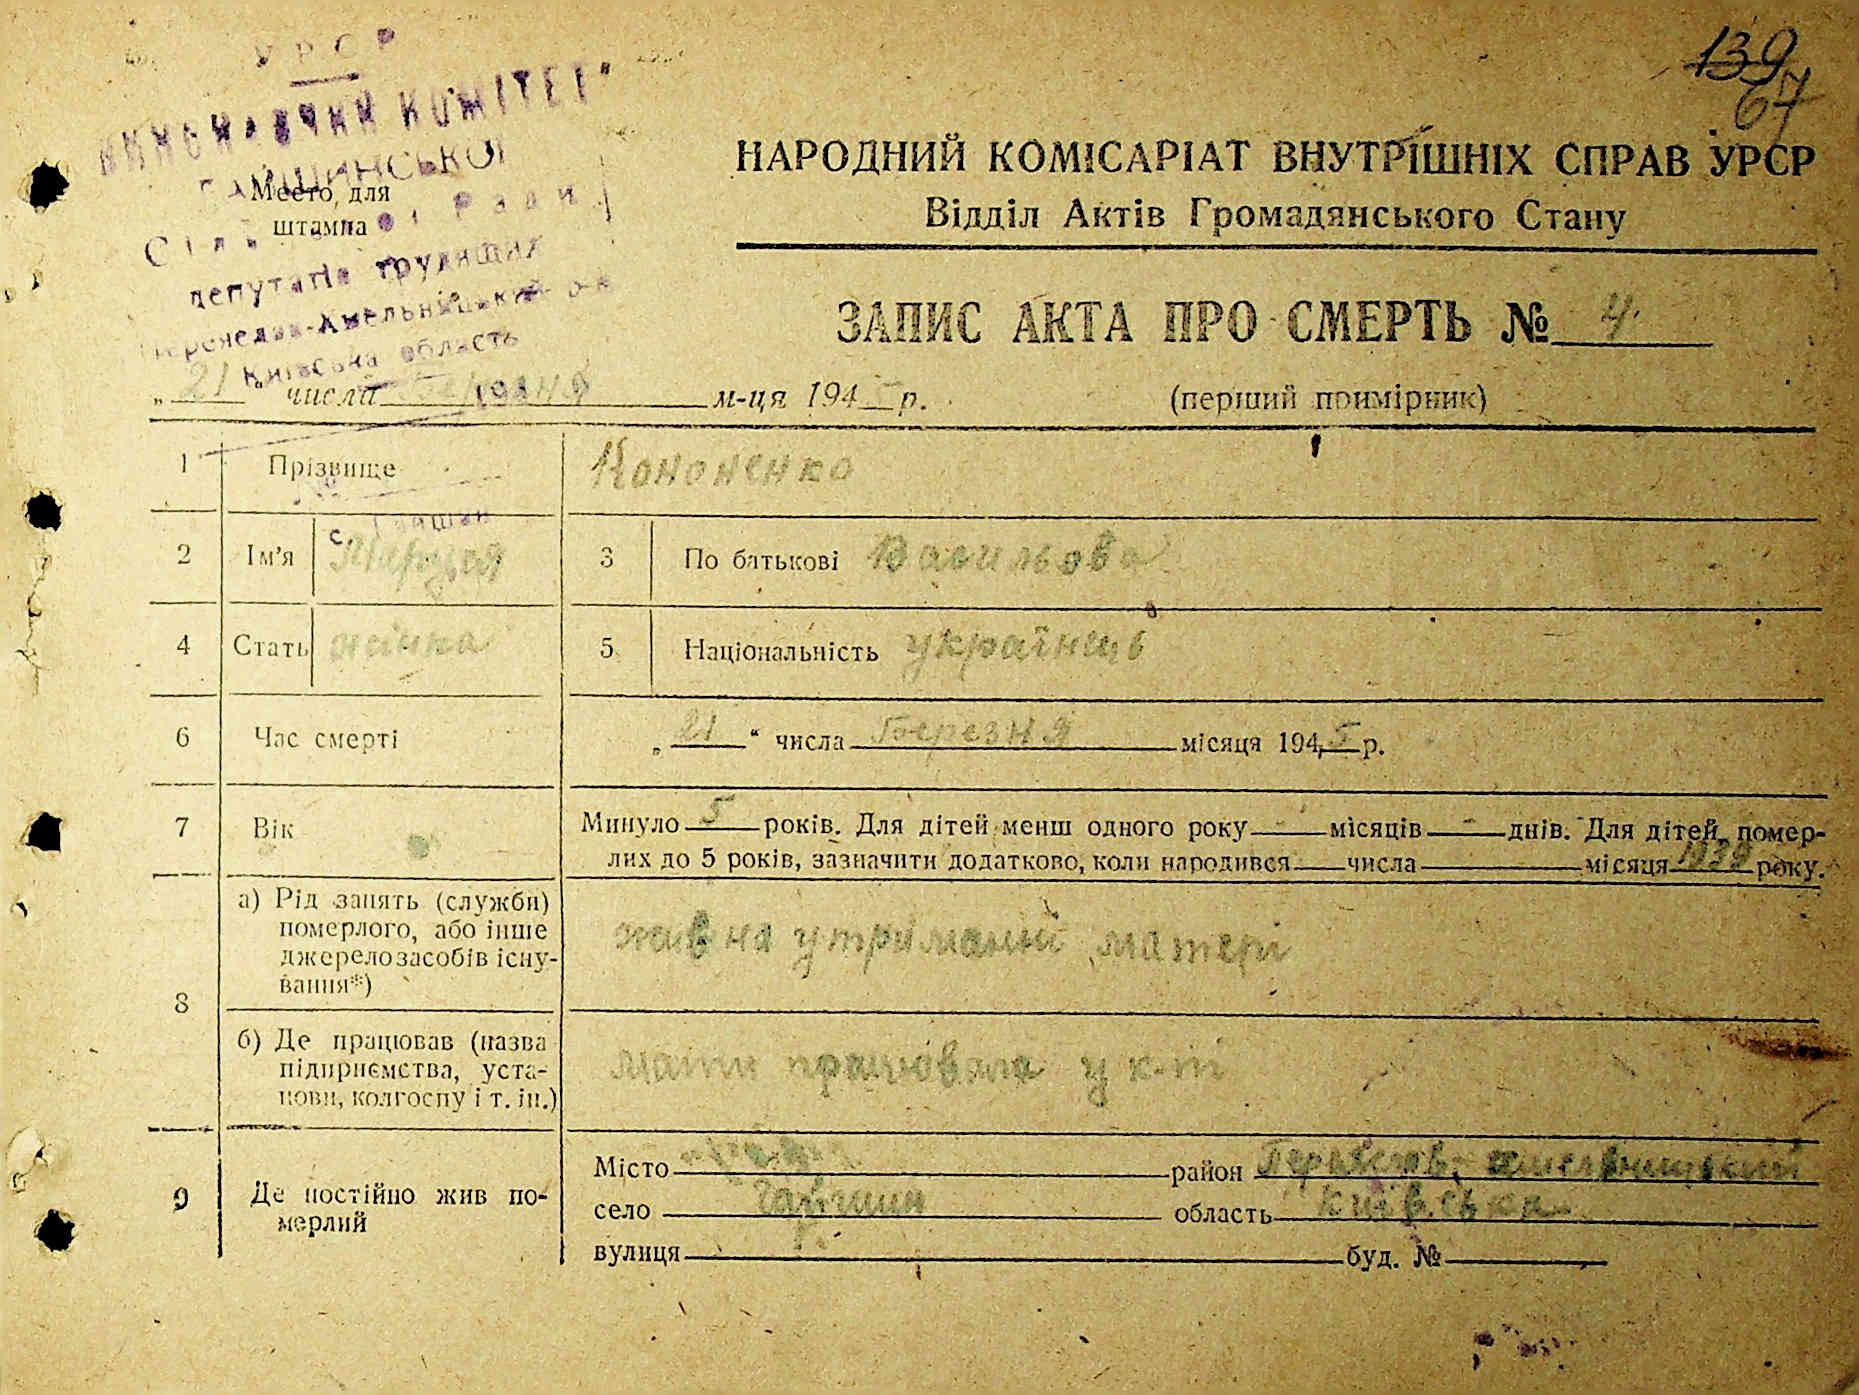 139
67
УРСР
ВИКОНАВЧИЙ КОМІТЕТ
ГАЙШИНСЬКОЇ
Сільської Ради
депутатів трудящих
Переяслав-Хмельницький р-н
Київська область
194
с. Гайшин
Место для
штампа
НАРОДНИЙ КОМІСАРІАТ ВНУТРІШНІХ СПРАВ УРСР
Відділ Актів Громадянського Стану
ЗАПИС АКТА ПРО СМЕРТЬ № 4
„21“ числа березня м-ця 1945 р. (перший примірник)
1 Прізвище Кононенко
2 Ім’я 3 По батькові Васильова
4 Стать жінка 5 Національність українць
6 Час смерті „21“ числа Березня місяця 1945 р.
7 Вік Минуло 5 років. Для дітей менш одного року - місяців - днів. Для дітей, помер-
лих до 5 років, зазначити додатково, коли народився числа місяця 1939 року.
8 а) Рід занять (служби)
померлого, або інше
джерело засобів існу-
вання*)
жив на утриманні матері
б) Де працював (назва
підприємства, уста-
нови, колгоспу і т. ін.)
мати працювала у к-пі
9 Де постійно жив по-
мерлий
Місто район Переяслав-Хмельницький
село Гайшин область київська
вулиця буд. №